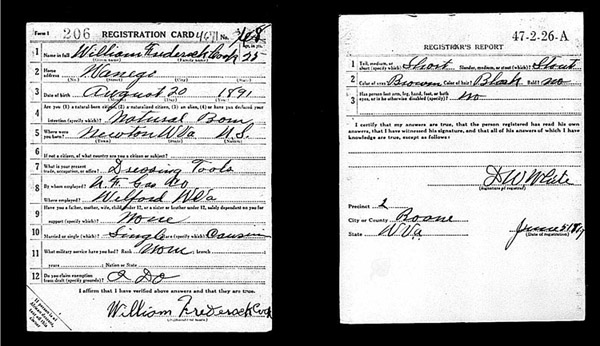 Form 1 206 REGISTRATION CARD 4671 No. 108
Age, in yrs.
1 Name in full William Frederick Cook 25
(Given name) (Family name)
2 Home address Wanego
(No.) (Street) (City) (State)
3 Date of birth August 20 1891
(Month) (Day) (Year)
4 Are you (1) a natural-born citizen, (2) a naturalized citizen, (3) an alien, (4) or have you declared your
intention (specify which)? Natural Born
5 Where were you born? Newton W Va U.S.
(Town) (State) (Nation)
6 If not a citizen, of what country are you a citizen or subject?
7 What is your present trade, occupation, or office? Dressing Tools
8 By whom employed? U. F. Gas Co
Where employed? Welford W Va
9 Have you a father, mother, wife, child under 12, or a sister or brother under 12, solely dependent on you for
support (specify which)? None
10 Married or single (which)? Single Race (specify which)? Caucasin
11 What military service have you had? Rank None ; branch
; years ; Nation or State
12 Do you claim exemption from draft (specify grounds)? I Do
I affirm that I have verified above answers and that they are true.
William Frederick Cook
(Signature or mark)
If person is of African descent, tear off this corner
47-2-26-A
REGISTRAR'S REPORT
1 Tall, medium, or short (specify which)? Short Slender, medium, or stout (which)? Stout
2 Color of eyes? Brown Color of hair? Black Bald? No
3 Has person lost arm, leg, hand, foot, or both eyes, or is he otherwise disabled (specify)? No
I certify that my answers are true, that the person registered has read his own
answers, that I have witnessed his signature, and that all of his answers of which I have
knowledge are true, except as follows:
D W White
(Signature of registrar)
Precinct 2
City or County Roane
State W Va. June 5 1917
(Date of registration)